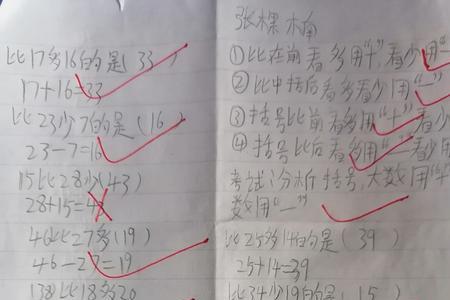 比17多16的是(33)
17+16=33
比23少7的是(16)
23-7=16
15比28少(43)
28+15=43
46比27多(19)
46-27=19
138比18多20
①比在前看多用"十"看少用"一
②比中括后看多看少用"一"
③括号比前看多用"十"看少
④括号比后看多用"一"看少用
考试分析括号,大数用"十
数用"一"
比25多14的是(39)
25+14=39
比34少19的是(15)